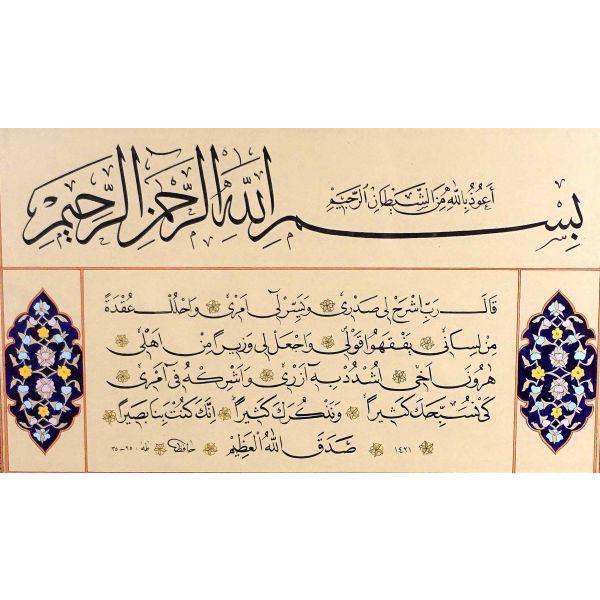 أعوذ بالله من الشيطان الرجيم
بسم الله الرحمن الرحيم
قال رب اشرح لي صدري ويسر لي أمري واحلل عقدة
من لساني يفقهوا قولي واجعل لي وزيرا من أهلي
هرون أخي اشدد به أزري وأشركه في أمري
كي نسبحك كثيرا ونذكرك كثيرا إنك كنت بنا بصيرا
١٤٢١ صدق الله العظيم حافظ طه : ٢٥-٣٥